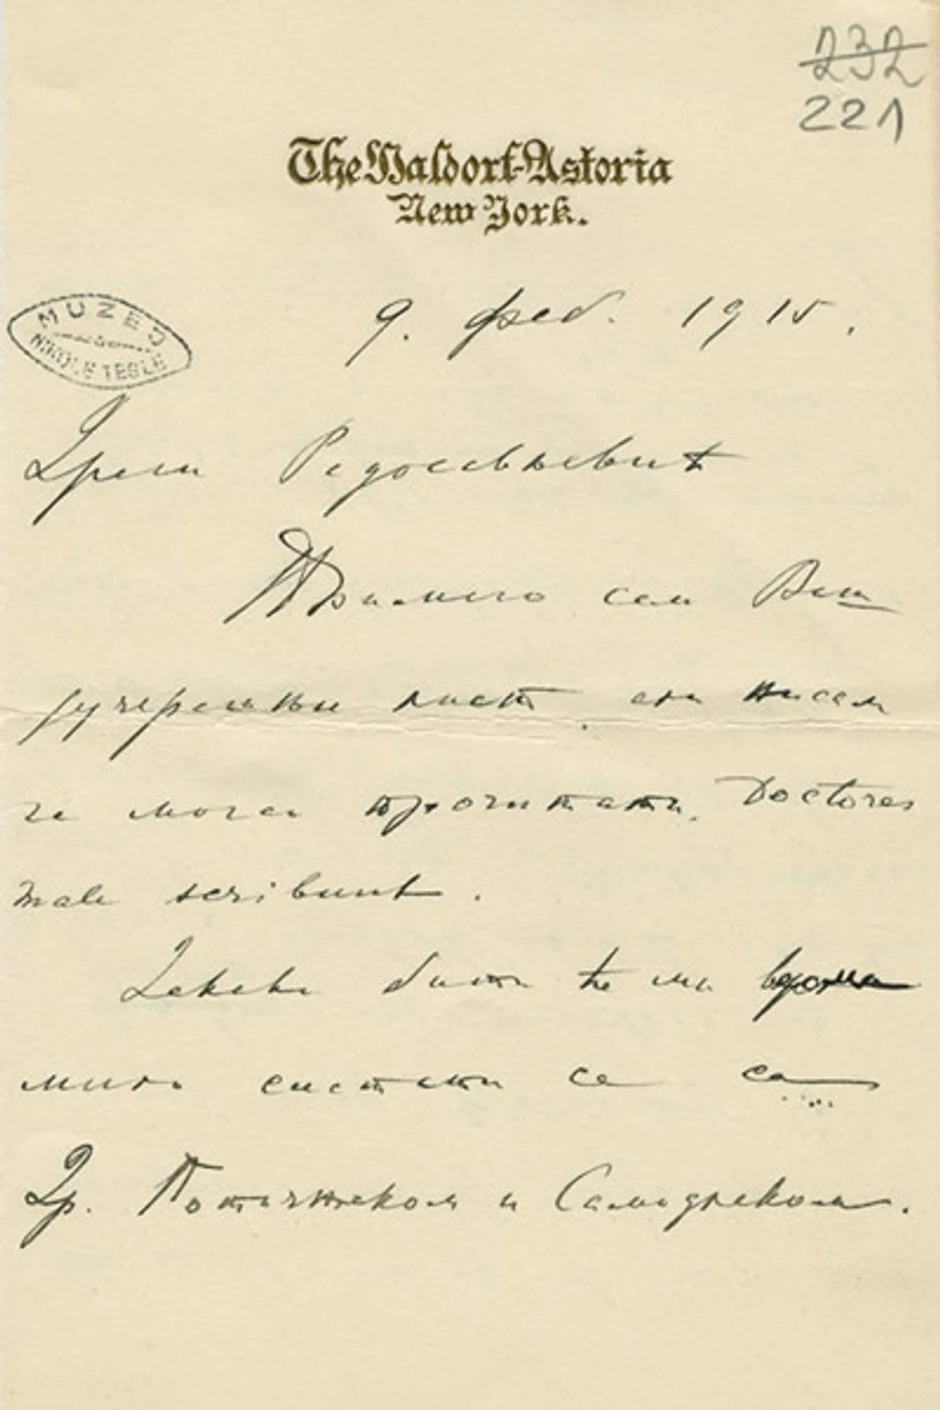 232
221
The Waldorf-Astoria
New York.
MUZEJ
NIKOLE TESLE
9. феб. 1915.
Драги Радосављевић
Примио сам Ваш
јучерашњи лист али нисам
га могао прочитати. Doctores
male scribunt.
Дакако бити ће ми врома
мило састати се са
Др. Поточњаком и Самодреком.